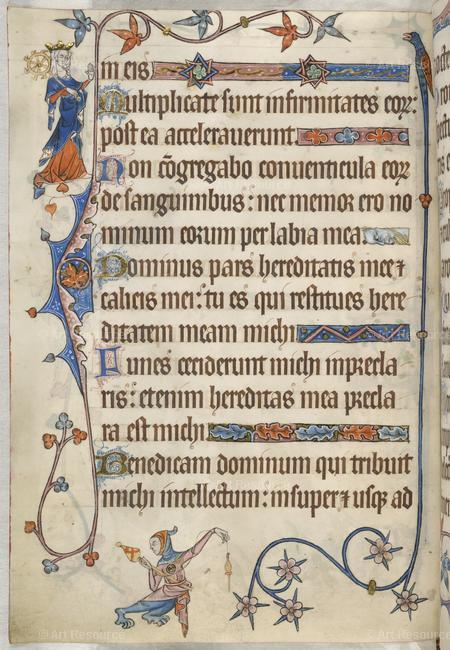 in eis
Multiplicate sunt infirmitates eoꝝ:
postea accelerauerunt
Non cōgregabo conuenticula eoꝝ
de sanguinibus: nec memor ero no
minum eorum per labia mea.
Dominus pars hereditatis mee ⁊
calicis mei: tu es qui restitues here
ditatem meam michi
Funes ceciderunt michi inprecla
ris: etenim hereditas mea precla
ra est michi
Benedicam dominum qui tribuit
michi intellectum: insuper ⁊ usqꝫ ad
© Art Resource